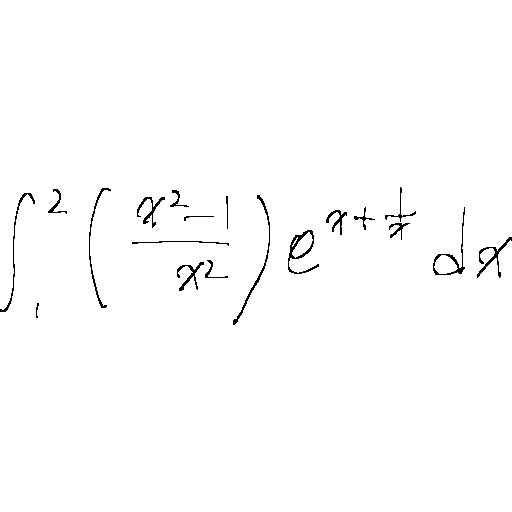 \int_{1}^{2} \left( \frac{x^2-1}{x^2} \right) e^{x+\frac{1}{x}} dx